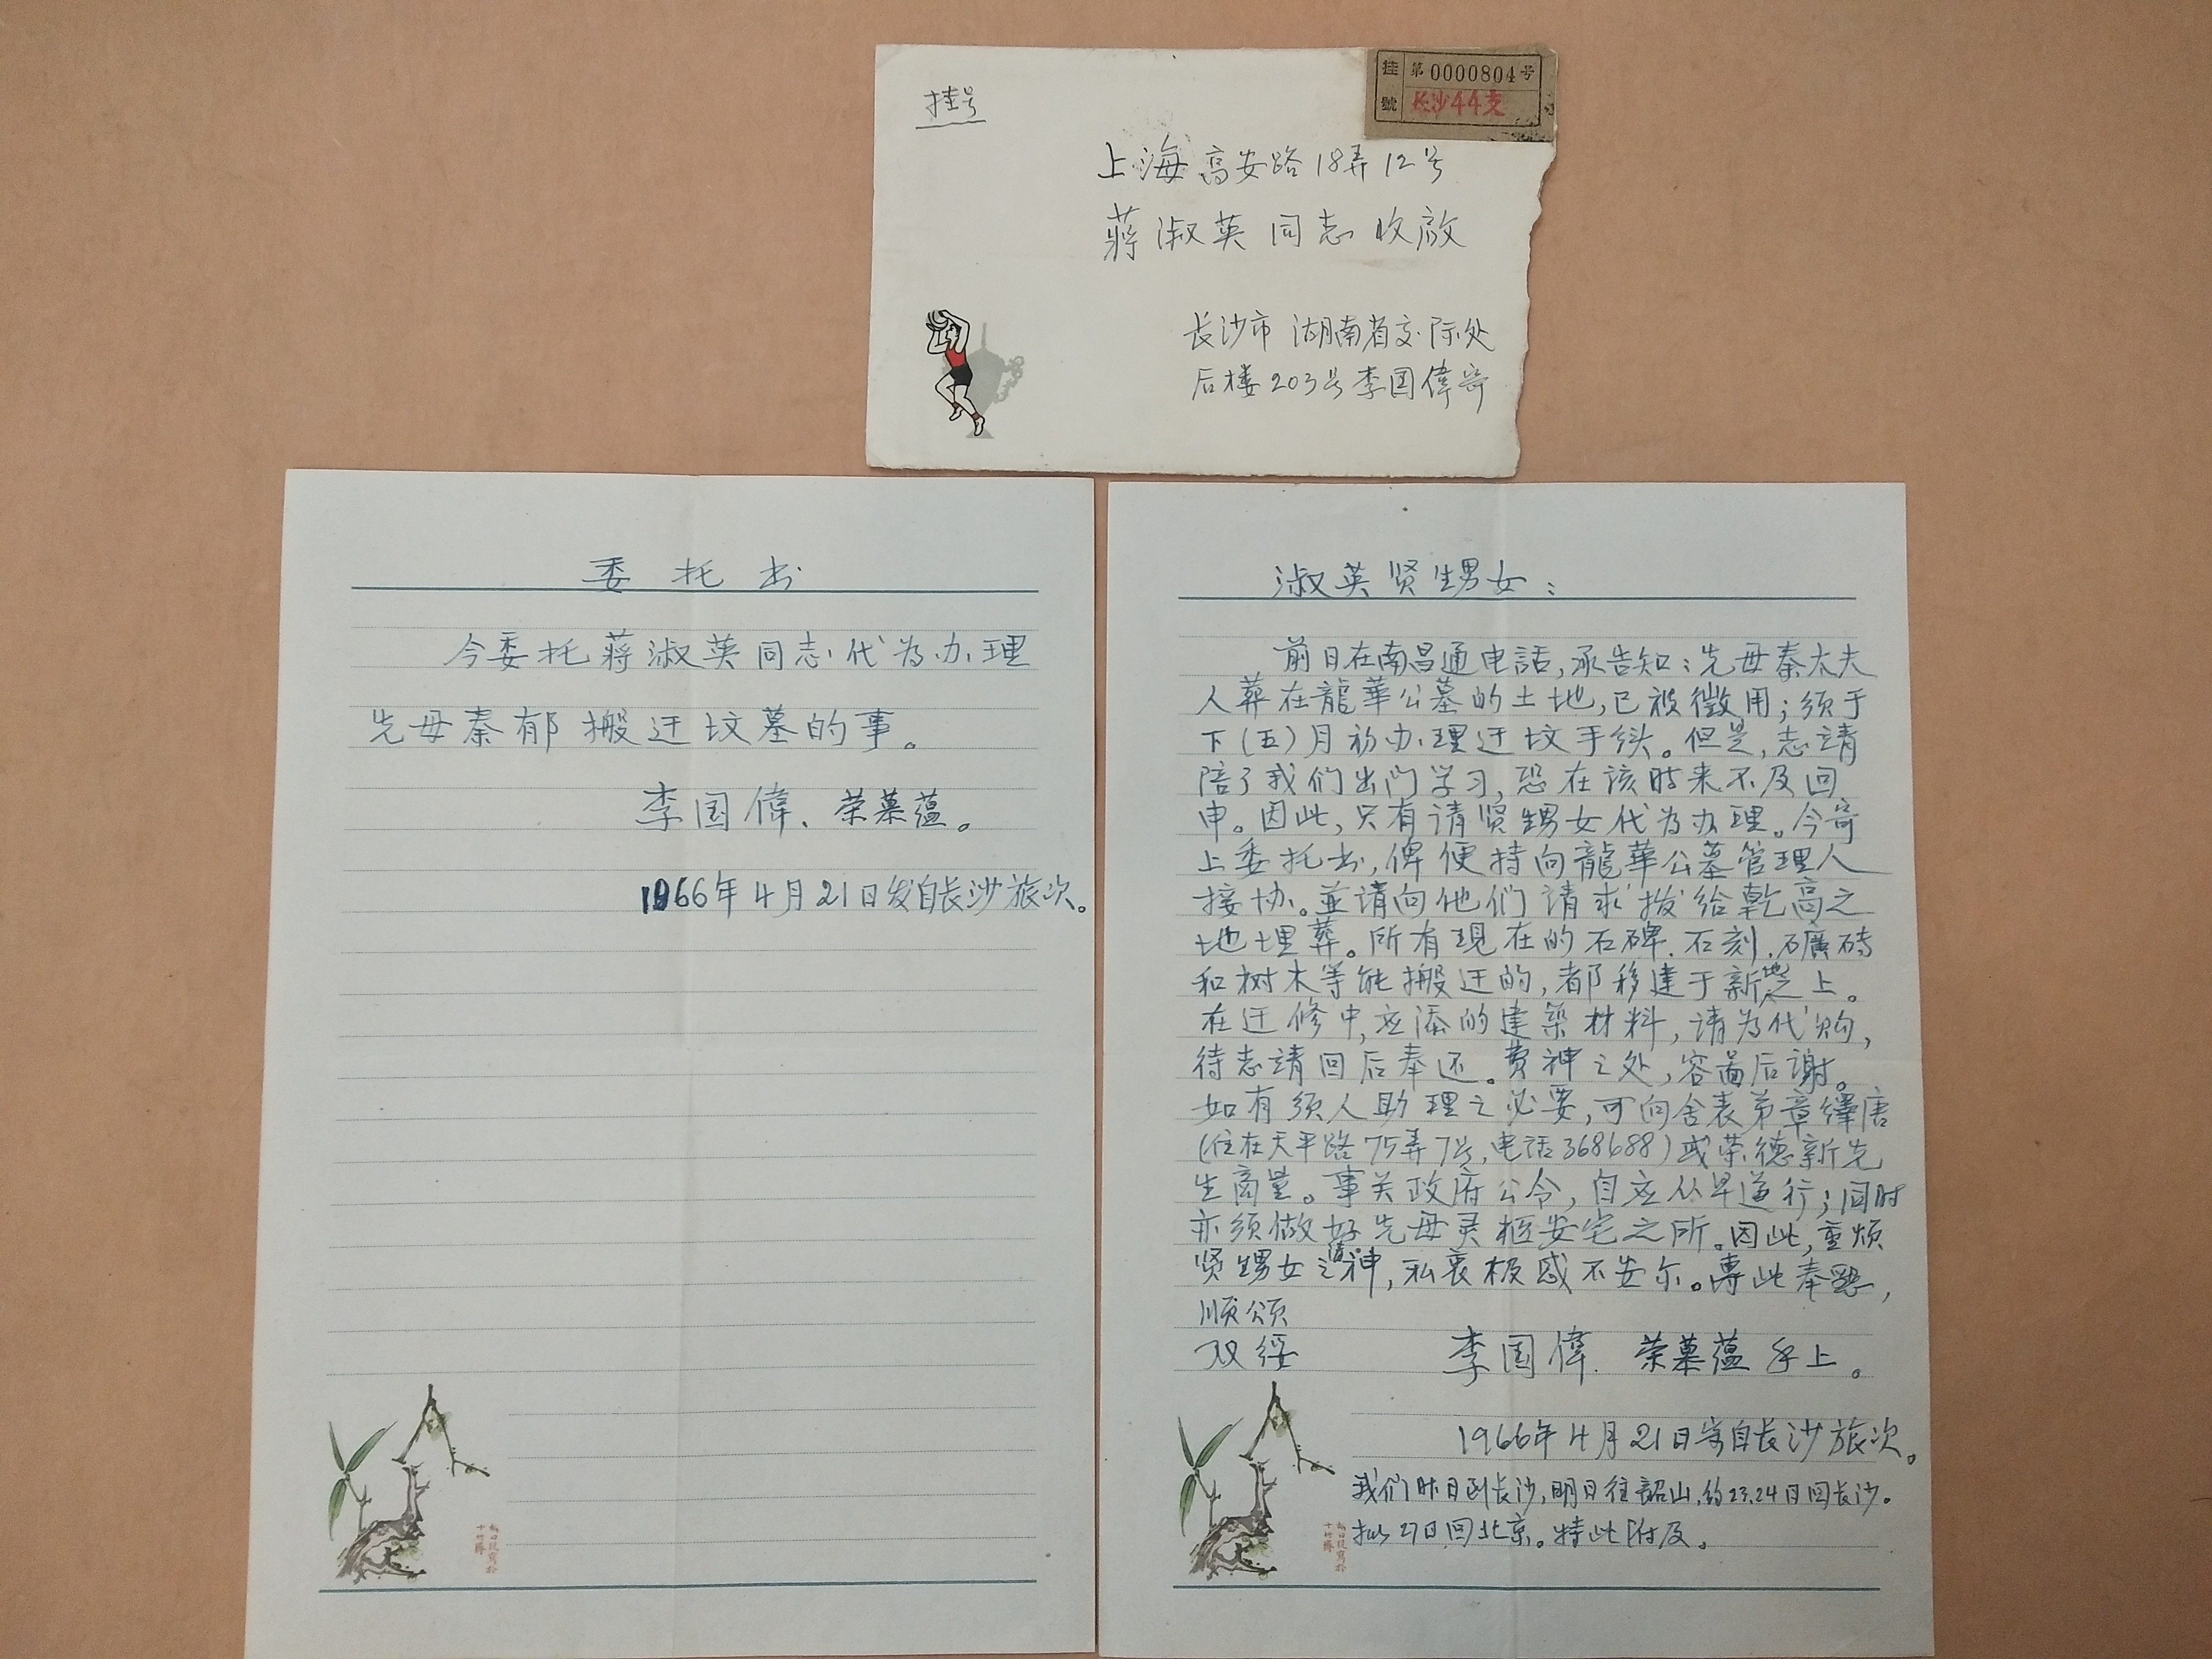 挂号
挂號
第0000804号
长沙44支
上海高安路18弄12号
蔣淑英同志收啟
长沙市湖南省交际处
后楼203号李国偉寄
委托书
今委托蔣淑英同志代为办理
先母秦郁搬迁坟墓的事。
李国偉、荣慕蕴。
1966年4月21日发自长沙旅次。
淑英贤甥女:
前日在南昌通电話,承告知:先母秦太夫
人葬在龍華公墓的土地,已被徵用;须于
下(五)月初办理迁坟手续。但是,志請
陪了我们出门学习,恐在该时来不及回
申。因此,只有请贤甥女代为办理。今寄
上委托书,俾便持向龍華公墓管理人
接协。並请向他们请求拨给乾高之
地埋葬。所有現在的石碑.石刻.礦砖
和树木等能搬迁的,都移建于新地之上。
在迁修中,应添的建築材料,请为代购,
待志請回后奉还。费神之处,容面后謝。
如有须人助理之必要,可向舍表弟章繹唐
(住在天平路75弄7号,电话368688)或荣德新先
生商量。事关政府公令,自应从早遵行;同时
亦须做好先母灵柩安宅之所。因此,重烦
贤甥女之清神,私衷极感不安尔。專此奉懇,
順颂
双绥
李国偉.荣慕蕴手上。
1966年4月21日寄自长沙旅次。
我们昨日到长沙,明日往韶山,约23.24日回长沙。
拟27日回北京。特此附及。